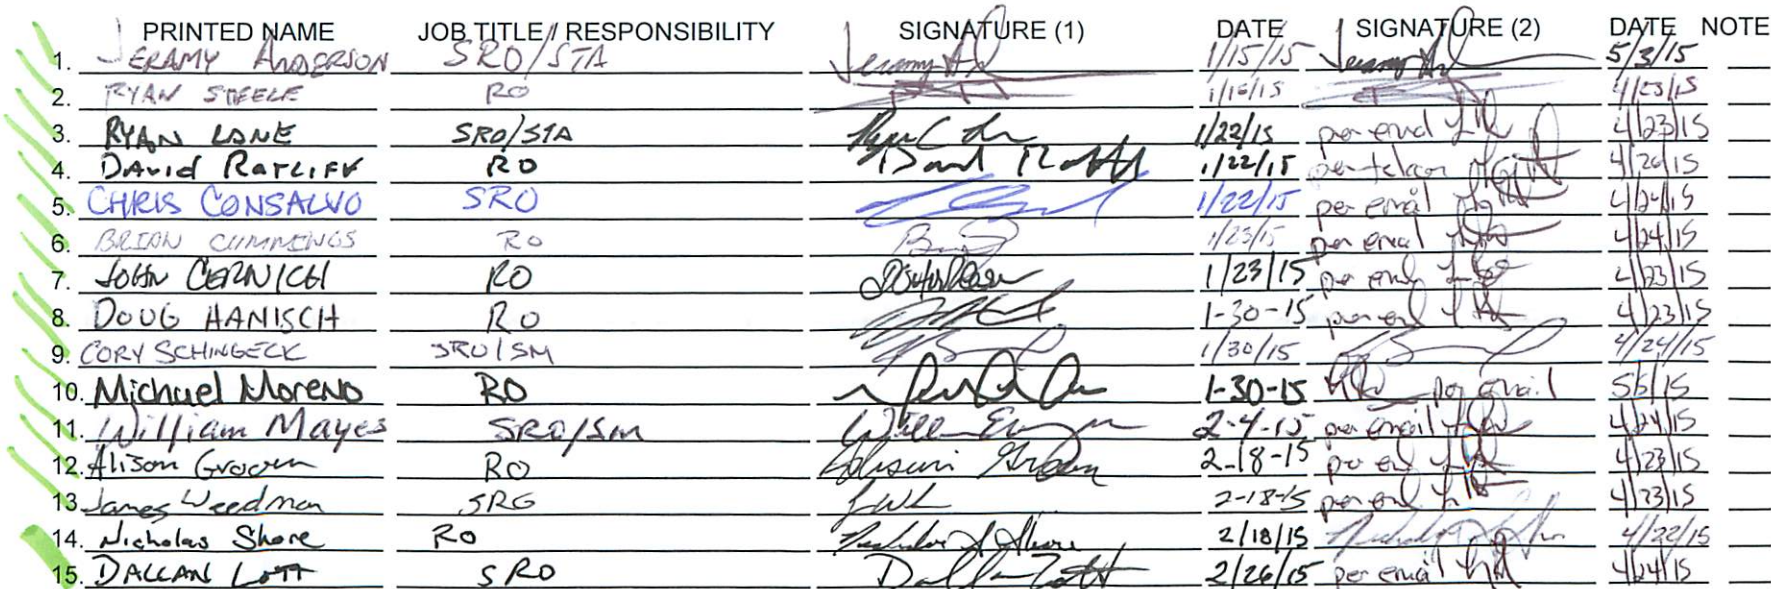 PRINTED NAME JOB TITLE / RESPONSIBILITY SIGNATURE (1) DATE SIGNATURE (2) DATE NOTE
1. JERAMY ANDERSON SRO/STA Jeramy 1/15/15 Jeramy 5/3/15
2. RYAN STEELE RO 1/16/15 4/23/15
3. RYAN LANE SRO/STA 1/22/15 per email 4/23/15
4. DAVID RATLIFF RO David 1/22/15 per telcon 4/26/15
5. CHRIS CONSALVO SRO 1/22/15 per email 4/24/15
6. BRIAN CUMMINGS RO 1/23/15 per email 4/24/15
7. JOHN CERNICH RO 1/23/15 per email 4/23/15
8. DOUG HANISCH RO 1-30-15 per email 4/23/15
9. CORY SCHINGECK SRO/SM 1/30/15 4/24/15
10. Michael Moreno RO 1-30-15 per email 5/6/15
11. William Mayes SRO/SM 2-4-15 per email 4/24/15
12. Alison Groom RO 2-18-15 per email 4/23/15
13. James Weedman SRO 2-18-15 per email 4/23/15
14. Nicholas Shore RO Nicholas Shore 2/18/15 4/22/15
15. DALLAN LOTT SRO 2/26/15 per email 4/24/15